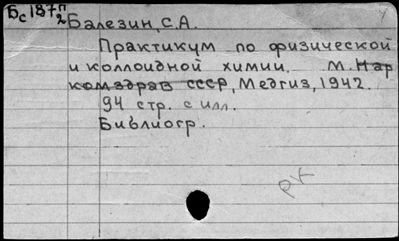 Бс187п/2
Балезин, С.А.
Практикум по физической
и коллоидной химии. М. Нар
комздрав СССР, Медгиз, 1942.
94 стр. с илл.
Библиогр.